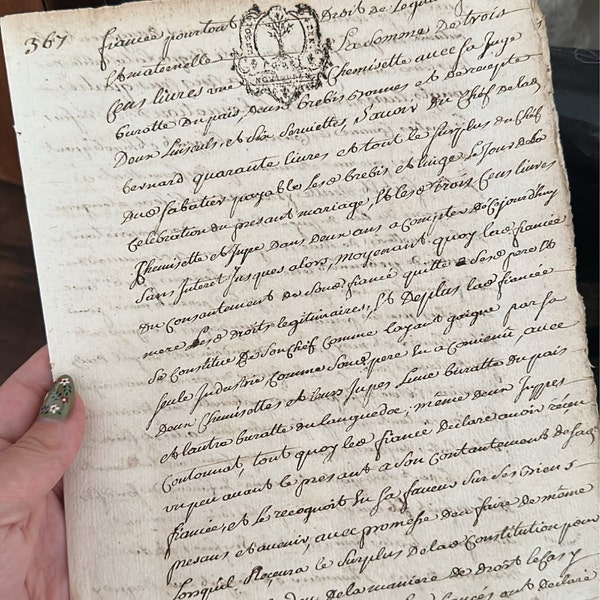 367
fiancée pour tout Droit de Legit
et maternelle La Somme de trois
Cens livres une Chemisette avec sa Juge
buratte Du païs, Deux brebis bonnes et de recepte
Deux Linsuls, et Six Serviettes, Savoir du Chef de lad
bernard quarante livres et tout le Surplus du Chef
dud Sabatier payable lesd brebis et linge le Jour de la
Celebration du present mariage, Et lesd trois Cens livres
Chemisette et Jupe Dans Deux ans a Compter de Cejourdhuy
Sans Interet Jusques alors, moyenant quoy lad fiancée
du Consantement de Soud fiancé quitte Sesd pere et
mere desd Droits legitimaires, Et De plus lad fiancée
Se Constitue De Son Chef Comme layant gaigné par Sa
Seule Industrie Comme Soud pere En a Convenü, avec
Deux Chemisettes et Deux Jupes Lune buratte Du païs
et Lautre buratte du languedoc, même Deux Juppes
Coutonnat, tout quoy led fiancé Declare avoir réçeu
un peu avant le présant a Son Contantement de lad
fiancée, et le recognoit En Sa faveur Sur Ses Biens
presans et avenir, avec promesse d'en faire de même
Lorsquil Reçeura le Surplus de lad Constitution pour
De la maniere de Droit
fiancés ont déclaré